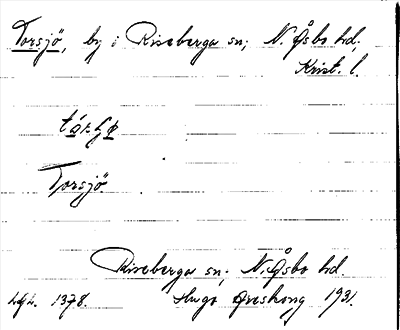 Torsjö, by i Riseberga sn; N. Åsbo hd,
Krist. l.
Torsjö
Riseberga sn; N. Åsbo hd.
Lgh. 1378. Hugo Areskoug 1931.